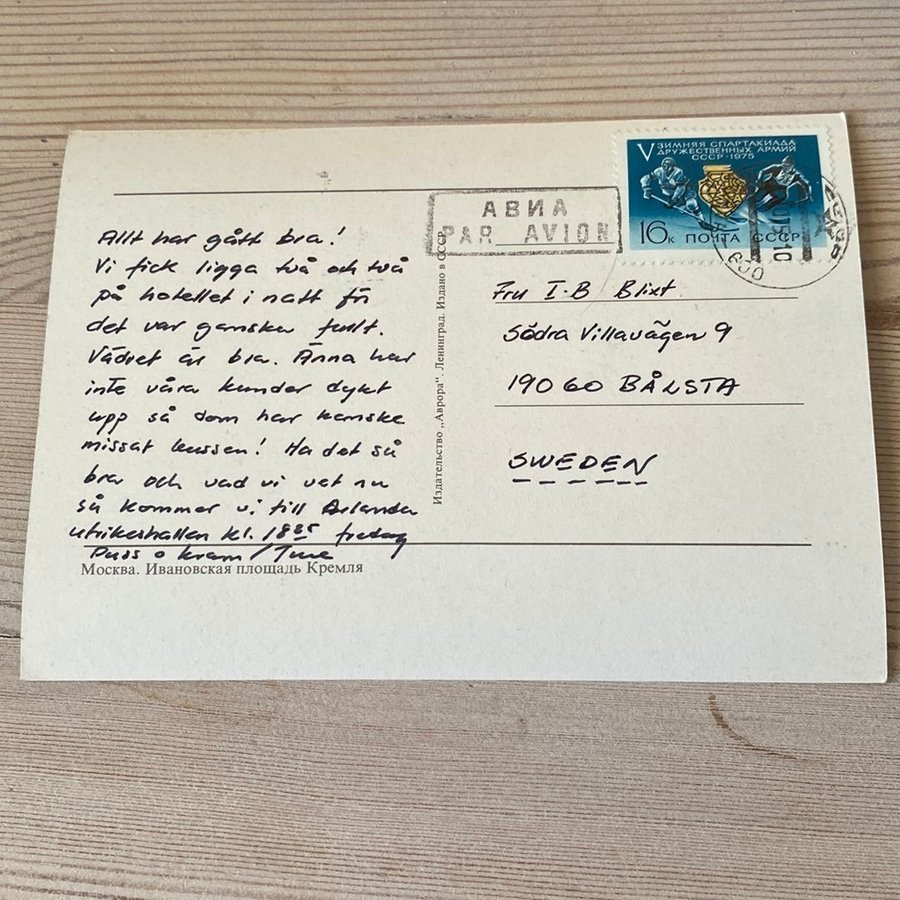 V ЗИМНЯЯ СПАРТАКИАДА
ДРУЖЕСТВЕННЫХ АРМИЙ
СССР·1975
16к ПОЧТА СССР
АВИА
PAR AVION
Allt har gått bra!
Vi fick ligga två och två
på hotellet i natt för
det var ganska fullt.
Vädret är bra. Änna har
inte våra kunder dykt
upp så dom har kanske
missat bussen! Ha det så
bra och vad vi vet nu
så kommer vi till Arlanda
utrikeshallen kl. 18 fredag
Puss o kram/
Издательство „Аврора“. Ленинград. Издано в СССР
Fru I-B Blixt
Södra Villavägen 9
190 60 BÅLSTA
SWEDEN
Москва. Ивановская площадь Кремля